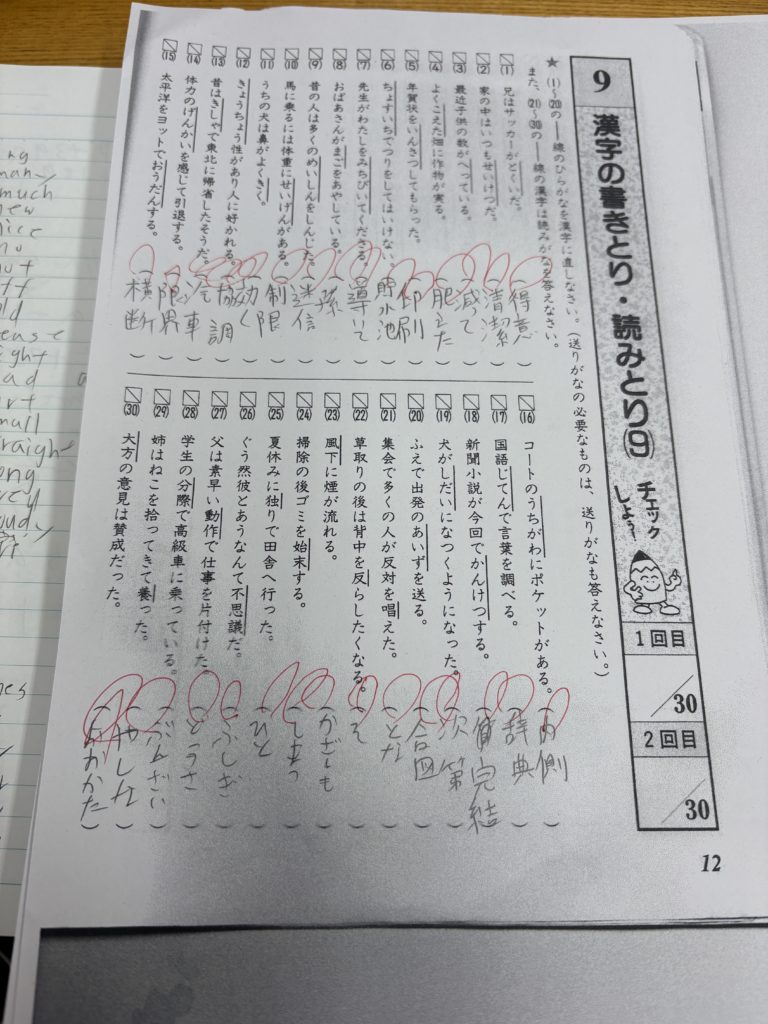 9 漢字の書きとり・読みとり⑨
チェックしよう!
1回目 /30
2回目 /30
★ (1)~(20)の――線のひらがなを漢字に直しなさい。(送りがなの必要なものは、送りがなも答えなさい。)
また、(21)~(30)の――線の漢字は読みがなを答えなさい。
(1) 兄はサッカーがとくいだ。 (得意)
(2) 家の中はいつもせいけつだ。 (清潔)
(3) 最近子供の数がへっている。 (減って)
(4) よくこえた畑に作物が実る。 (肥えた)
(5) 年賀状をいんさつしてもらった。 (印刷)
(6) ちょすいちでつりをしてはいけない。 (貯水池)
(7) 先生がわたしをみちびいてくださる。 (導いて)
(8) おばあさんがまごをあやしている。 (孫)
(9) 昔の人は多くのめいしんをしんじた。 (迷信)
(10) 馬に乗るには体重にせいげんがある。 (制限)
(11) うちの犬は鼻がよくきく。 (効く)
(12) きょうちょう性があり人に好かれる。 (協調)
(13) 昔はきしゃで東北に帰省したそうだ。 (汽車)
(14) 体力のげんかいを感じて引退する。 (限界)
(15) 太平洋をヨットでおうだんする。 (横断)
(16) コートのうちがわにポケットがある。 (内側)
(17) 国語じてんで言葉を調べる。 (辞典)
(18) 新聞小説が今回でかんけつする。 (完結)
(19) 犬がしだいになつくようになった。 (次第)
(20) ふえで出発のあいずを送る。 (合図)
(21) 集会で多くの人が反対を唱えた。 (とな)
(22) 草取りの後は背中を反らしたくなる。 (そ)
(23) 風下に煙が流れる。 (かざしも)
(24) 掃除の後ゴミを始末する。 (しまつ)
(25) 夏休みに独りで田舎へ行った。 (ひと)
(26) ぐう然彼とあうなんて不思議だ。 (ふしぎ)
(27) 父は素早い動作で仕事を片付けた。 (どうさ)
(28) 学生の分際で高級車に乗っている。 (ぶんざい)
(29) 姉はねこを拾ってきて養った。 (やしな)
(30) 大方の意見は賛成だった。 (おおかた)
12